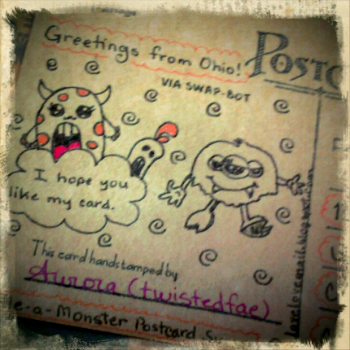 Greetings from Ohio!
POSTC
VIA SWAP-BOT
I hope you
like my card.
This card handstamped by
Aurora (twistedfae)
le-a-Monster Postcard Sw